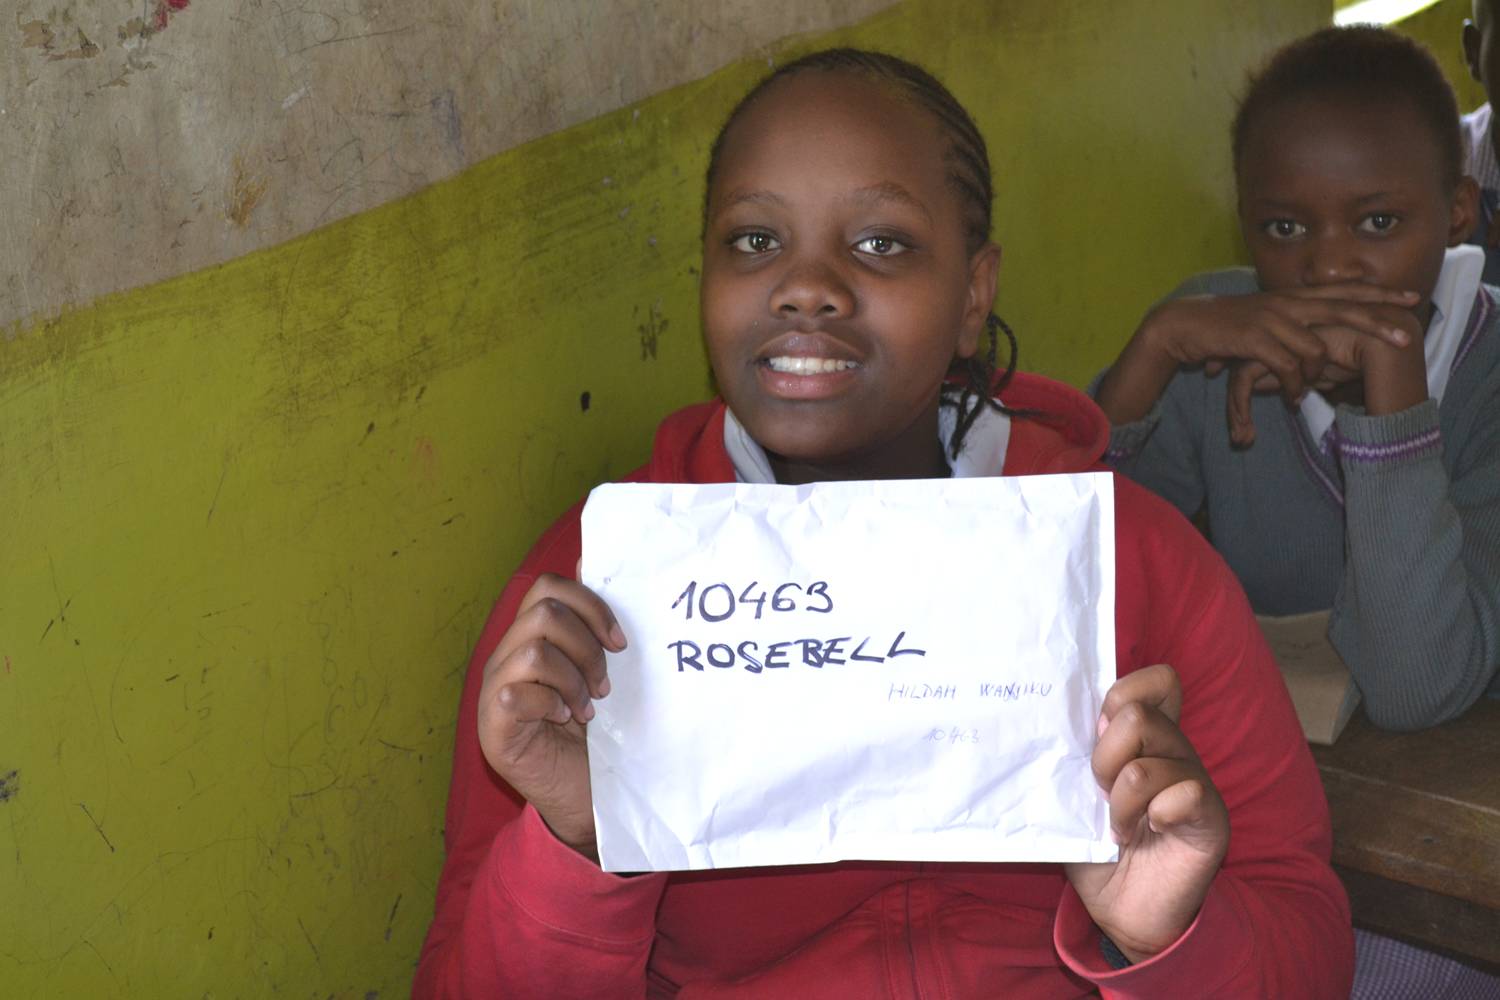 10463
ROSEBELL
HILDAH WANJIKU
10463